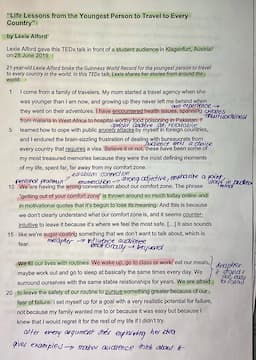 "Life Lessons from the Youngest Person to Travel to Every
Country"
by Lexie Alford
Lexie Alford gave this TEDx talk in front of a student audience in Klagenfurt, Austria
on 28 June 2019.
21-year-old Lexie Alford broke the Guinness World Record for the youngest person to travel
to every country in the world. In this TEDx talk, Lexie shares her stories from around the
world.
1 I come from a family of travelers. My mom started a travel agency when she
was younger than I am now, and growing up they never left me behind when
they went on their adventures. I have encountered health issues, spanning
from malaria in West Africa to hospital-worthy food poisoning in Pakistan. I
5 learned how to cope with public anxiety attacks by myself in foreign countries,
and I endured the brain-sizzling frustration of dealing with bureaucrats from
every country that requires a visa. Believe it or not, these have been some of
my most treasured memories because they were the most defining moments
of my life, spent far, far away from my comfort zone.
10 We are having the wrong conversation about our comfort zone. The phrase
"getting out of your comfort zone" is thrown around so much today online and
in motivational quotes that it's begun to lose its meaning. And this is because
we don't clearly understand what our comfort zone is, and it seems counter-
intuitive to leave it because it's where we feel the most safe. [...] It also sounds
15 like we're sugar-coating something that we don't want to talk about, which is
fear.
metaphor → influence audience
emotionally
We fill our lives with routines. We wake up, go to class or work, eat our meals,
maybe work out and go to sleep at basically the same times every day. We
surround ourselves with the same relationships for years. We are afraid
20 to leave the safety of our routine to pursue something greater because of our
fear of failure. I set myself up for a goal with a very realistic potential for failure,
not because my family wanted me to or because it was easy but because I
knew that I would regret it for the rest of my life if I didn't try.
after every argument she explaining her idea
gives examples → makes audience think about it